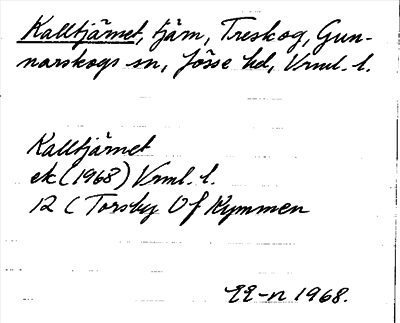 Kalltjärnet, tjärn, Treskog, Gun-
narskogs sn, Jösse hd, Vrml. l.
Kalltjärnet
ek (1968) Vrml. l.
12 C Torsby Of Kymmen
EE-n 1968.